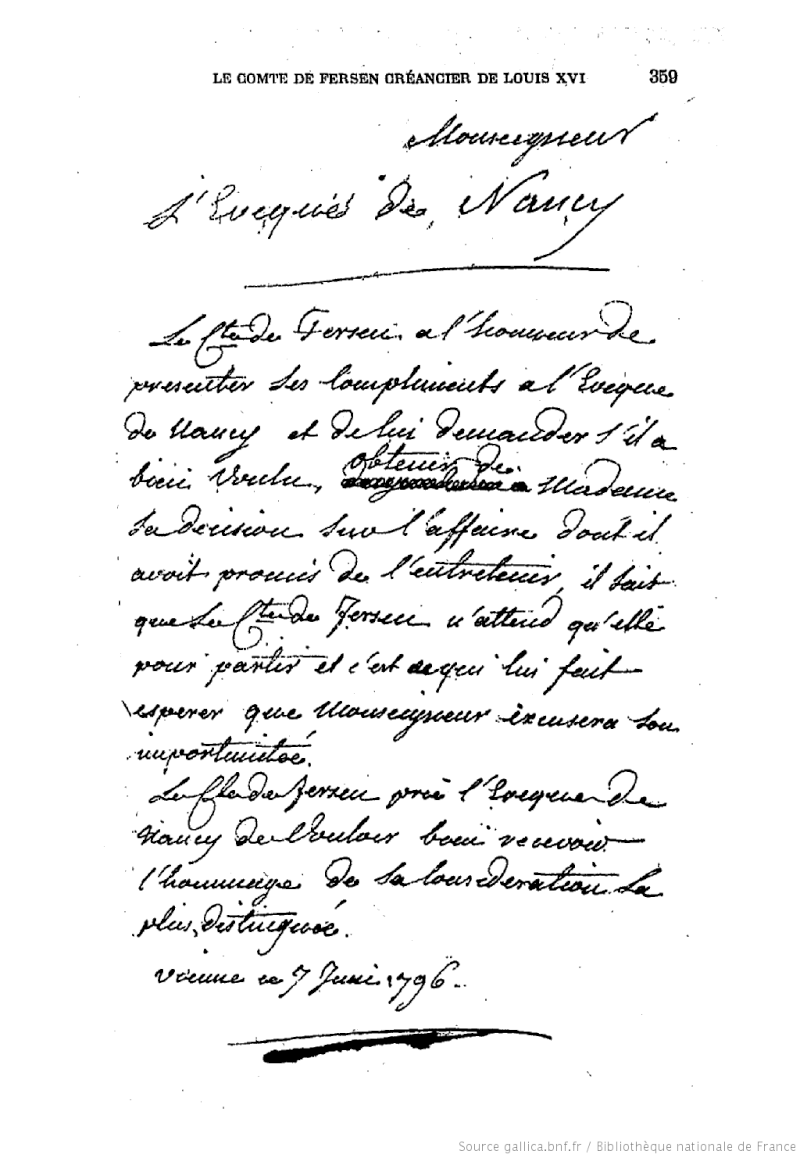 LE COMTE DE FERSEN CRÉANCIER DE LOUIS XVI 359
Monseigneur
L'Evequé de Nancy
Le Cte de Fersen a l'honneur de
presenter ses compliments a l'Eveque
de Nancy et de lui demander s'il a
bien voulu, obtenir de Madame
sa decision sur l'affaire dont il
avoit promis de l'entretenir, il sait
que le Cte de Fersen n'attend qu'elle
pour partir et c'est ce qui lui fait
esperer que Monseigneur excusera son
importunitée.
Le Cte de Fersen prie l'Eveque de
Nancy de vouloir bien recevoir
l'hommage de sa consideration la
plus distinguée.
Vienne ce 7 Juin 1796.
Source gallica.bnf.fr / Bibliothèque nationale de France